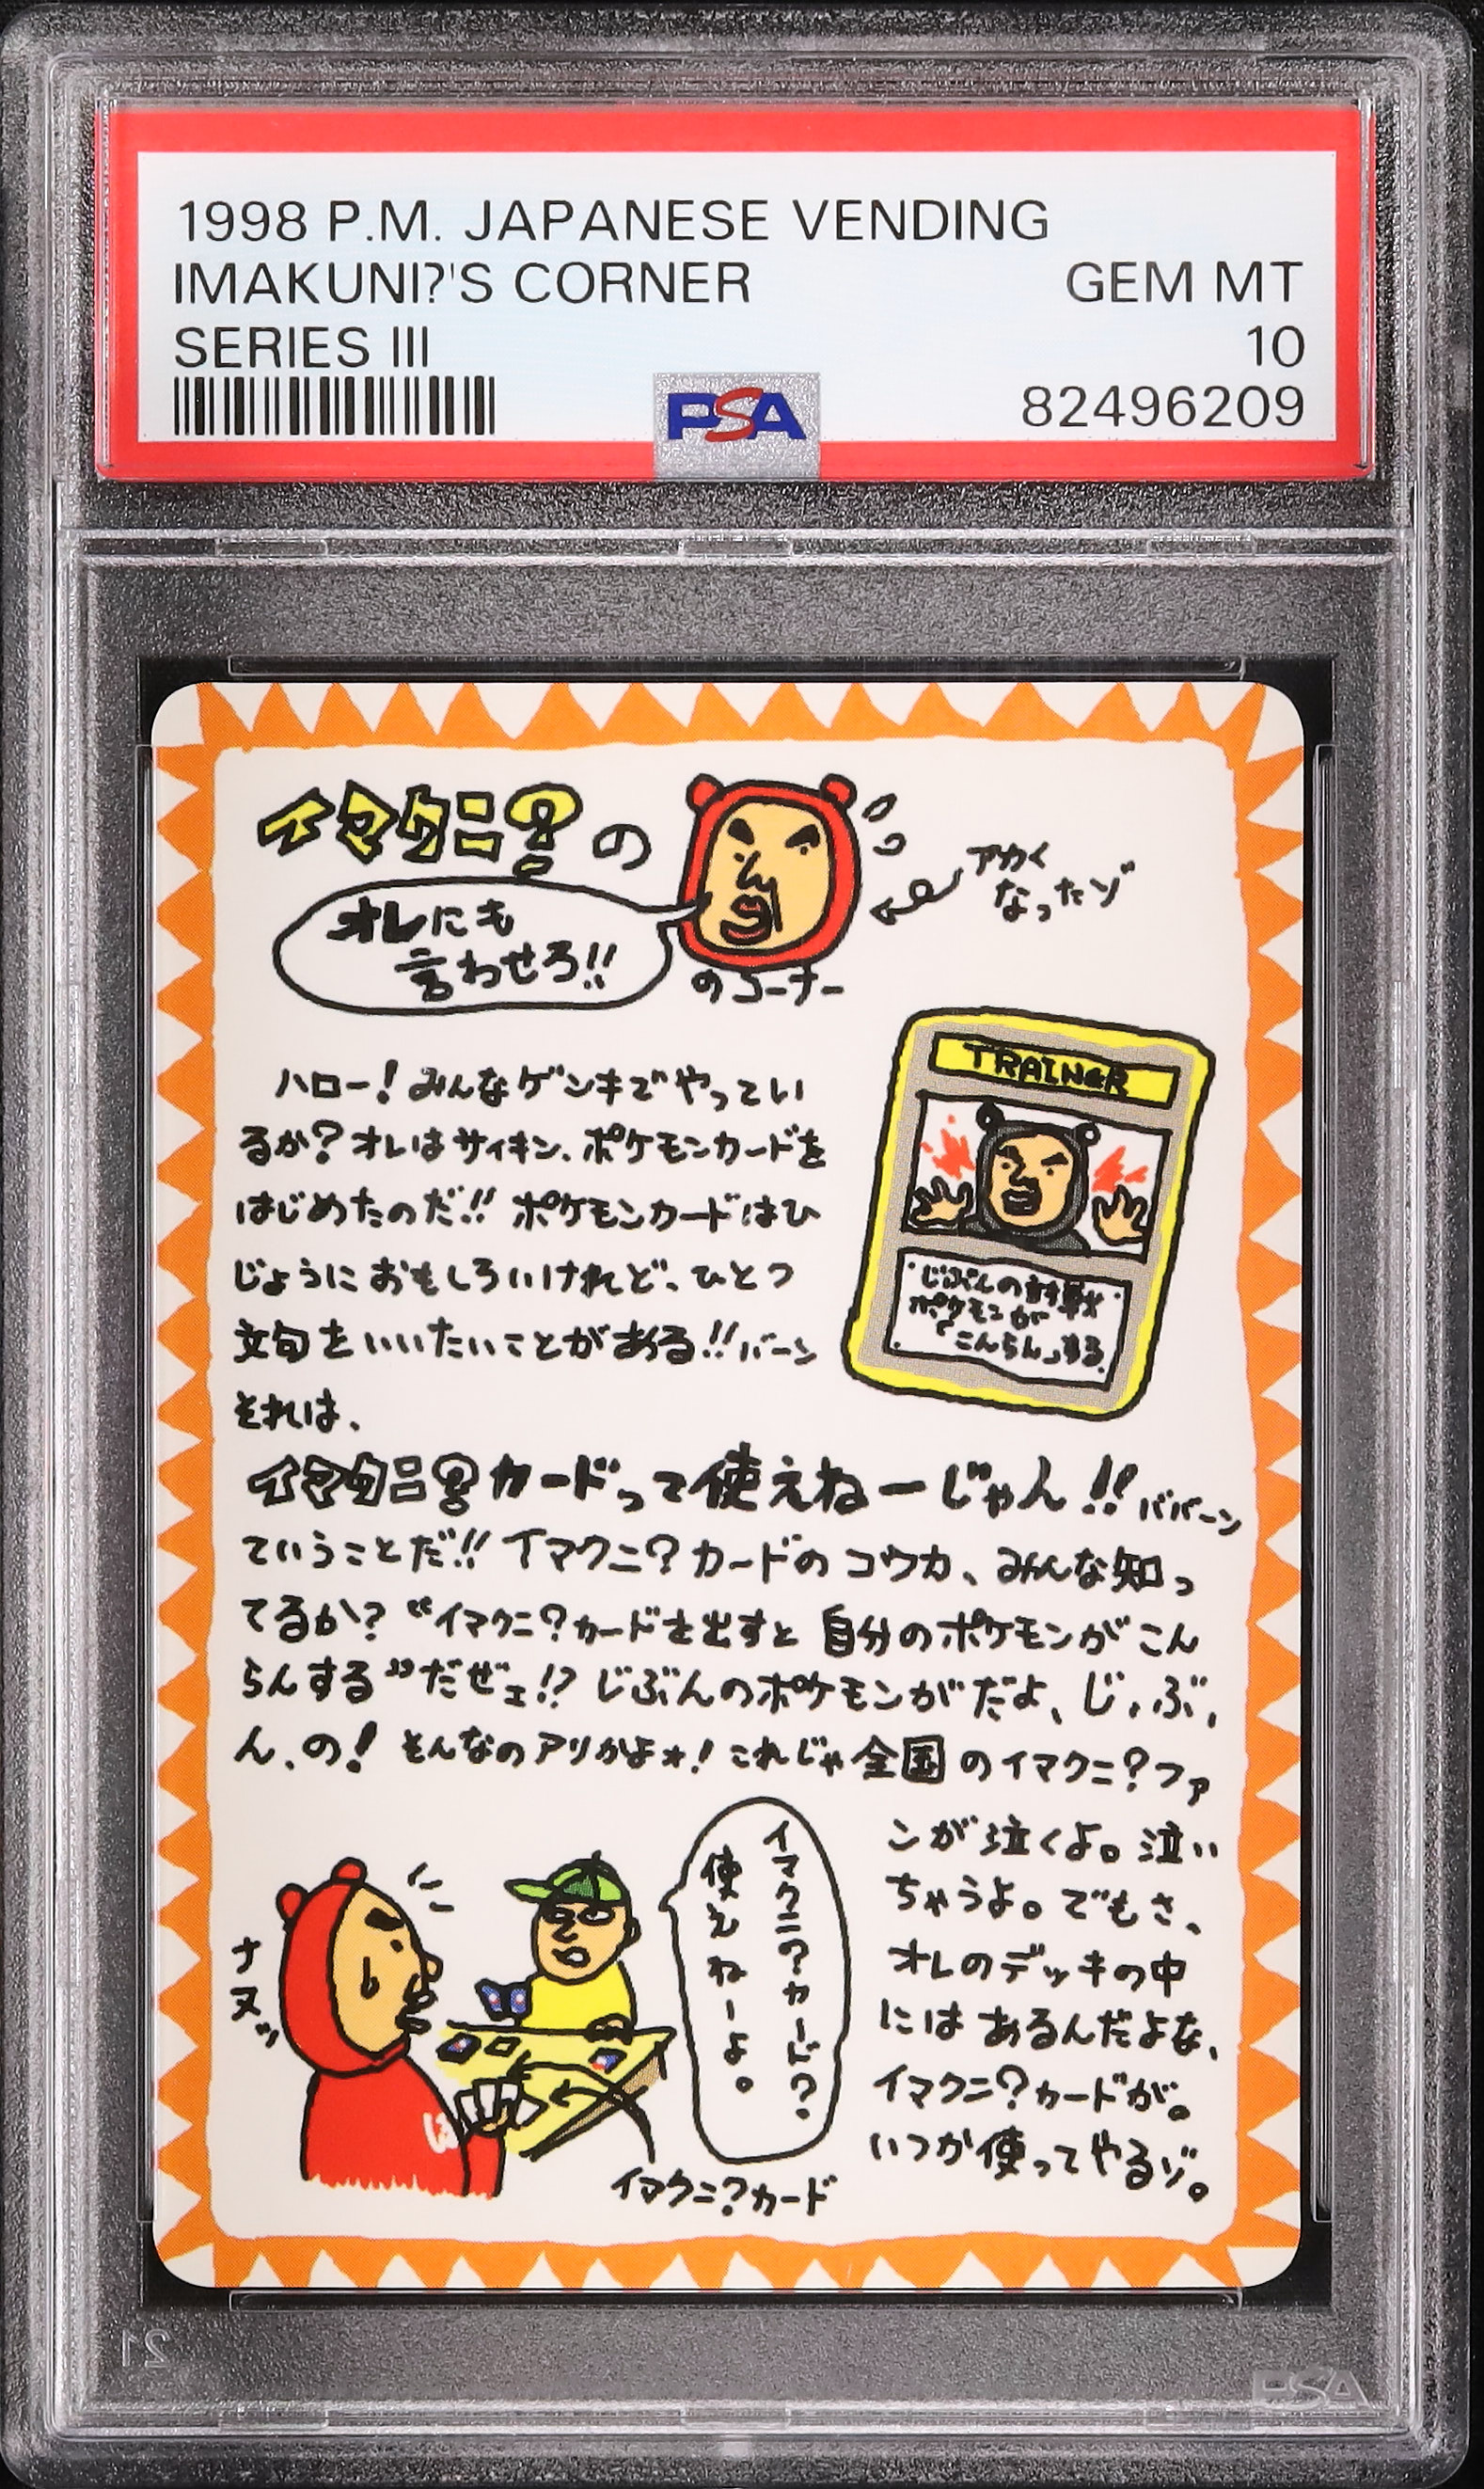 1998 P.M. JAPANESE VENDING
IMAKUNI?'S CORNER
GEM MT
SERIES III
10
PSA
82496209
イマクニ?の
アカく
なったゾ
オレにも
言わせろ!!
のコーナー
ハロー!みんなゲンキでやってい
るか?オレはサイキン、ポケモンカードを
はじめたのだ!!ポケモンカードはひ
じょうにおもしろいけれど、ひとつ
文句をいいたいことがある!!バーン
それは、
TRAINER
じぶんの対戦
ポケモンが
「こんらん」する。
イマクニ?カードって使えねーじゃん!!ババーン
ていうことだ!!イマクニ?カードのコウカ、みんな知っ
てるか?“イマクニ?カードを出すと自分のポケモンがこん
らんする”だぜェ!?じぶんのポケモンがだよ、じ、ぶ、
ん、の!そんなのアリかよォ!これじゃ全国のイマクニ?ファ
ンが泣くよ。泣い
ちゃうよ。でもさ、
オレのデッキの中
にはあるんだよな、
イマクニ?カードが。
いつか使ってやるゾ。
ナヌッ
イマクニ?カード?
使えねーよ。
イマクニ?カード
21
PSA